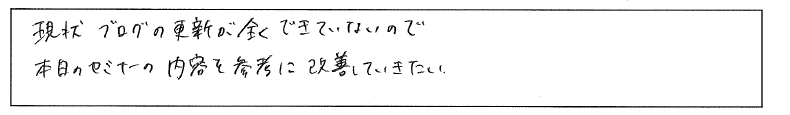 現状 ブログの更新が全くできていないので
本日のセミナーの内容を参考に改善していきたい.